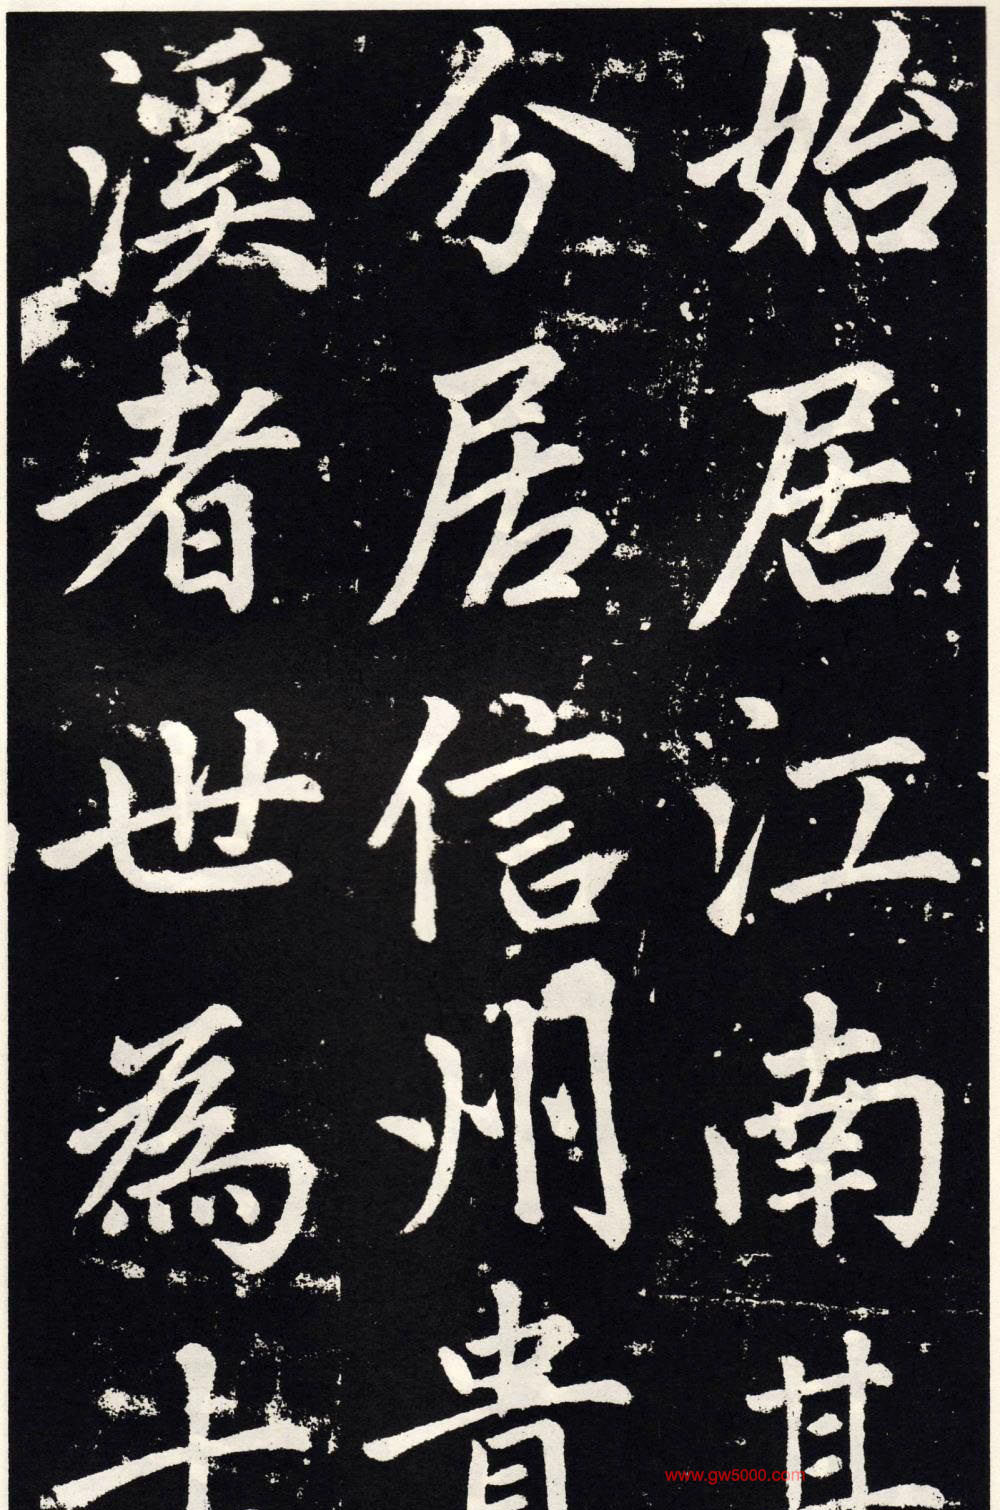 始居江南其
分居信州貴
溪者世為士
www.gw5000.com